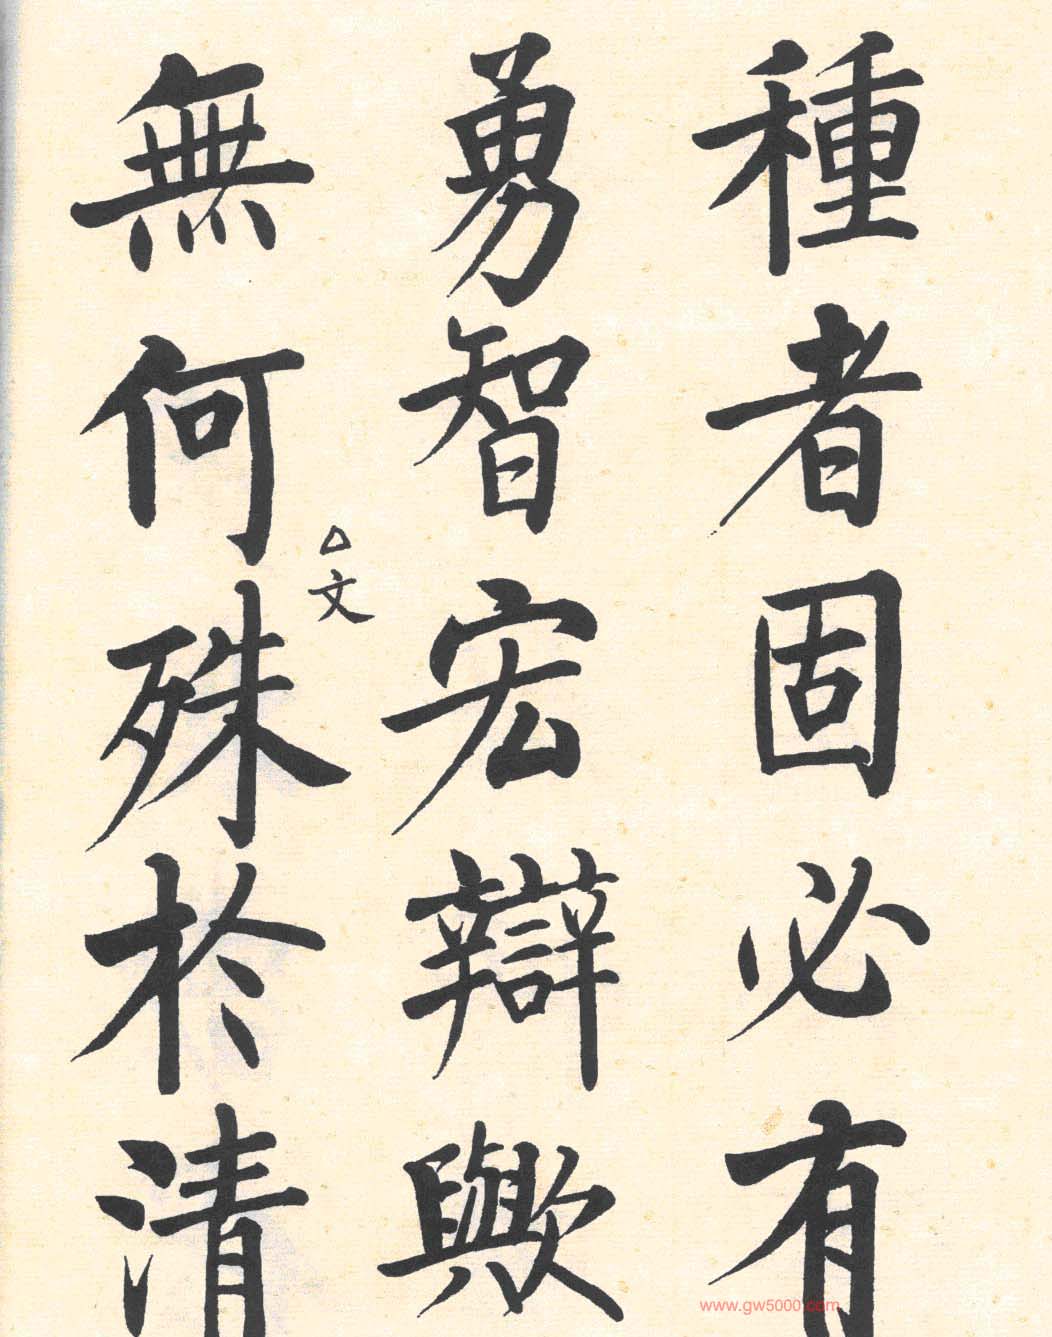 種者固必有
勇智宏辯歟
無何殊於清
△文
www.gw5000.com